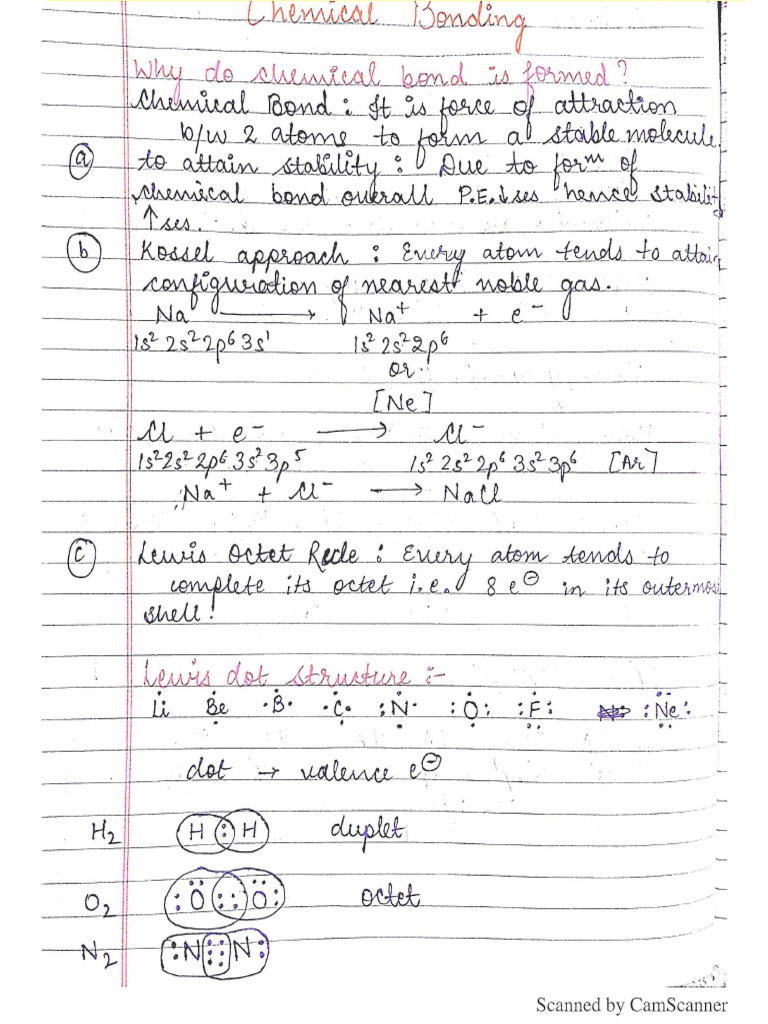 Chemical Bonding
Why do chemical bond is formed?
Chemical Bond : It is force of attraction
b/w 2 atoms to form a stable molecule
(a) to attain stability : Due to formⁿ of
chemical bond overall P.E.↓ses hence stabilit
↑ses.
(b) Kossel approach : Every atom tends to attain
configuration of nearest noble gas.
Na ⟶ Na⁺ + e⁻
1s² 2s² 2p⁶ 3s¹ 1s² 2s² 2p⁶
or.
[Ne]
Cl + e⁻ ⟶ Cl⁻
1s² 2s² 2p⁶ 3s² 3p⁵ 1s² 2s² 2p⁶ 3s² 3p⁶ [Ar]
Na⁺ + Cl⁻ ⟶ NaCl
(c) Lewis Octet Rule : Every atom tends to
complete its octet i.e. 8 e⊖ in its outermos
shell!
Lewis dot structure :-
Li Be B C N O F Ne
dot → valence e⊖
H₂ H : H duplet
O₂ :O::O: octet
N₂ :N:::N:
Scanned by CamScanner